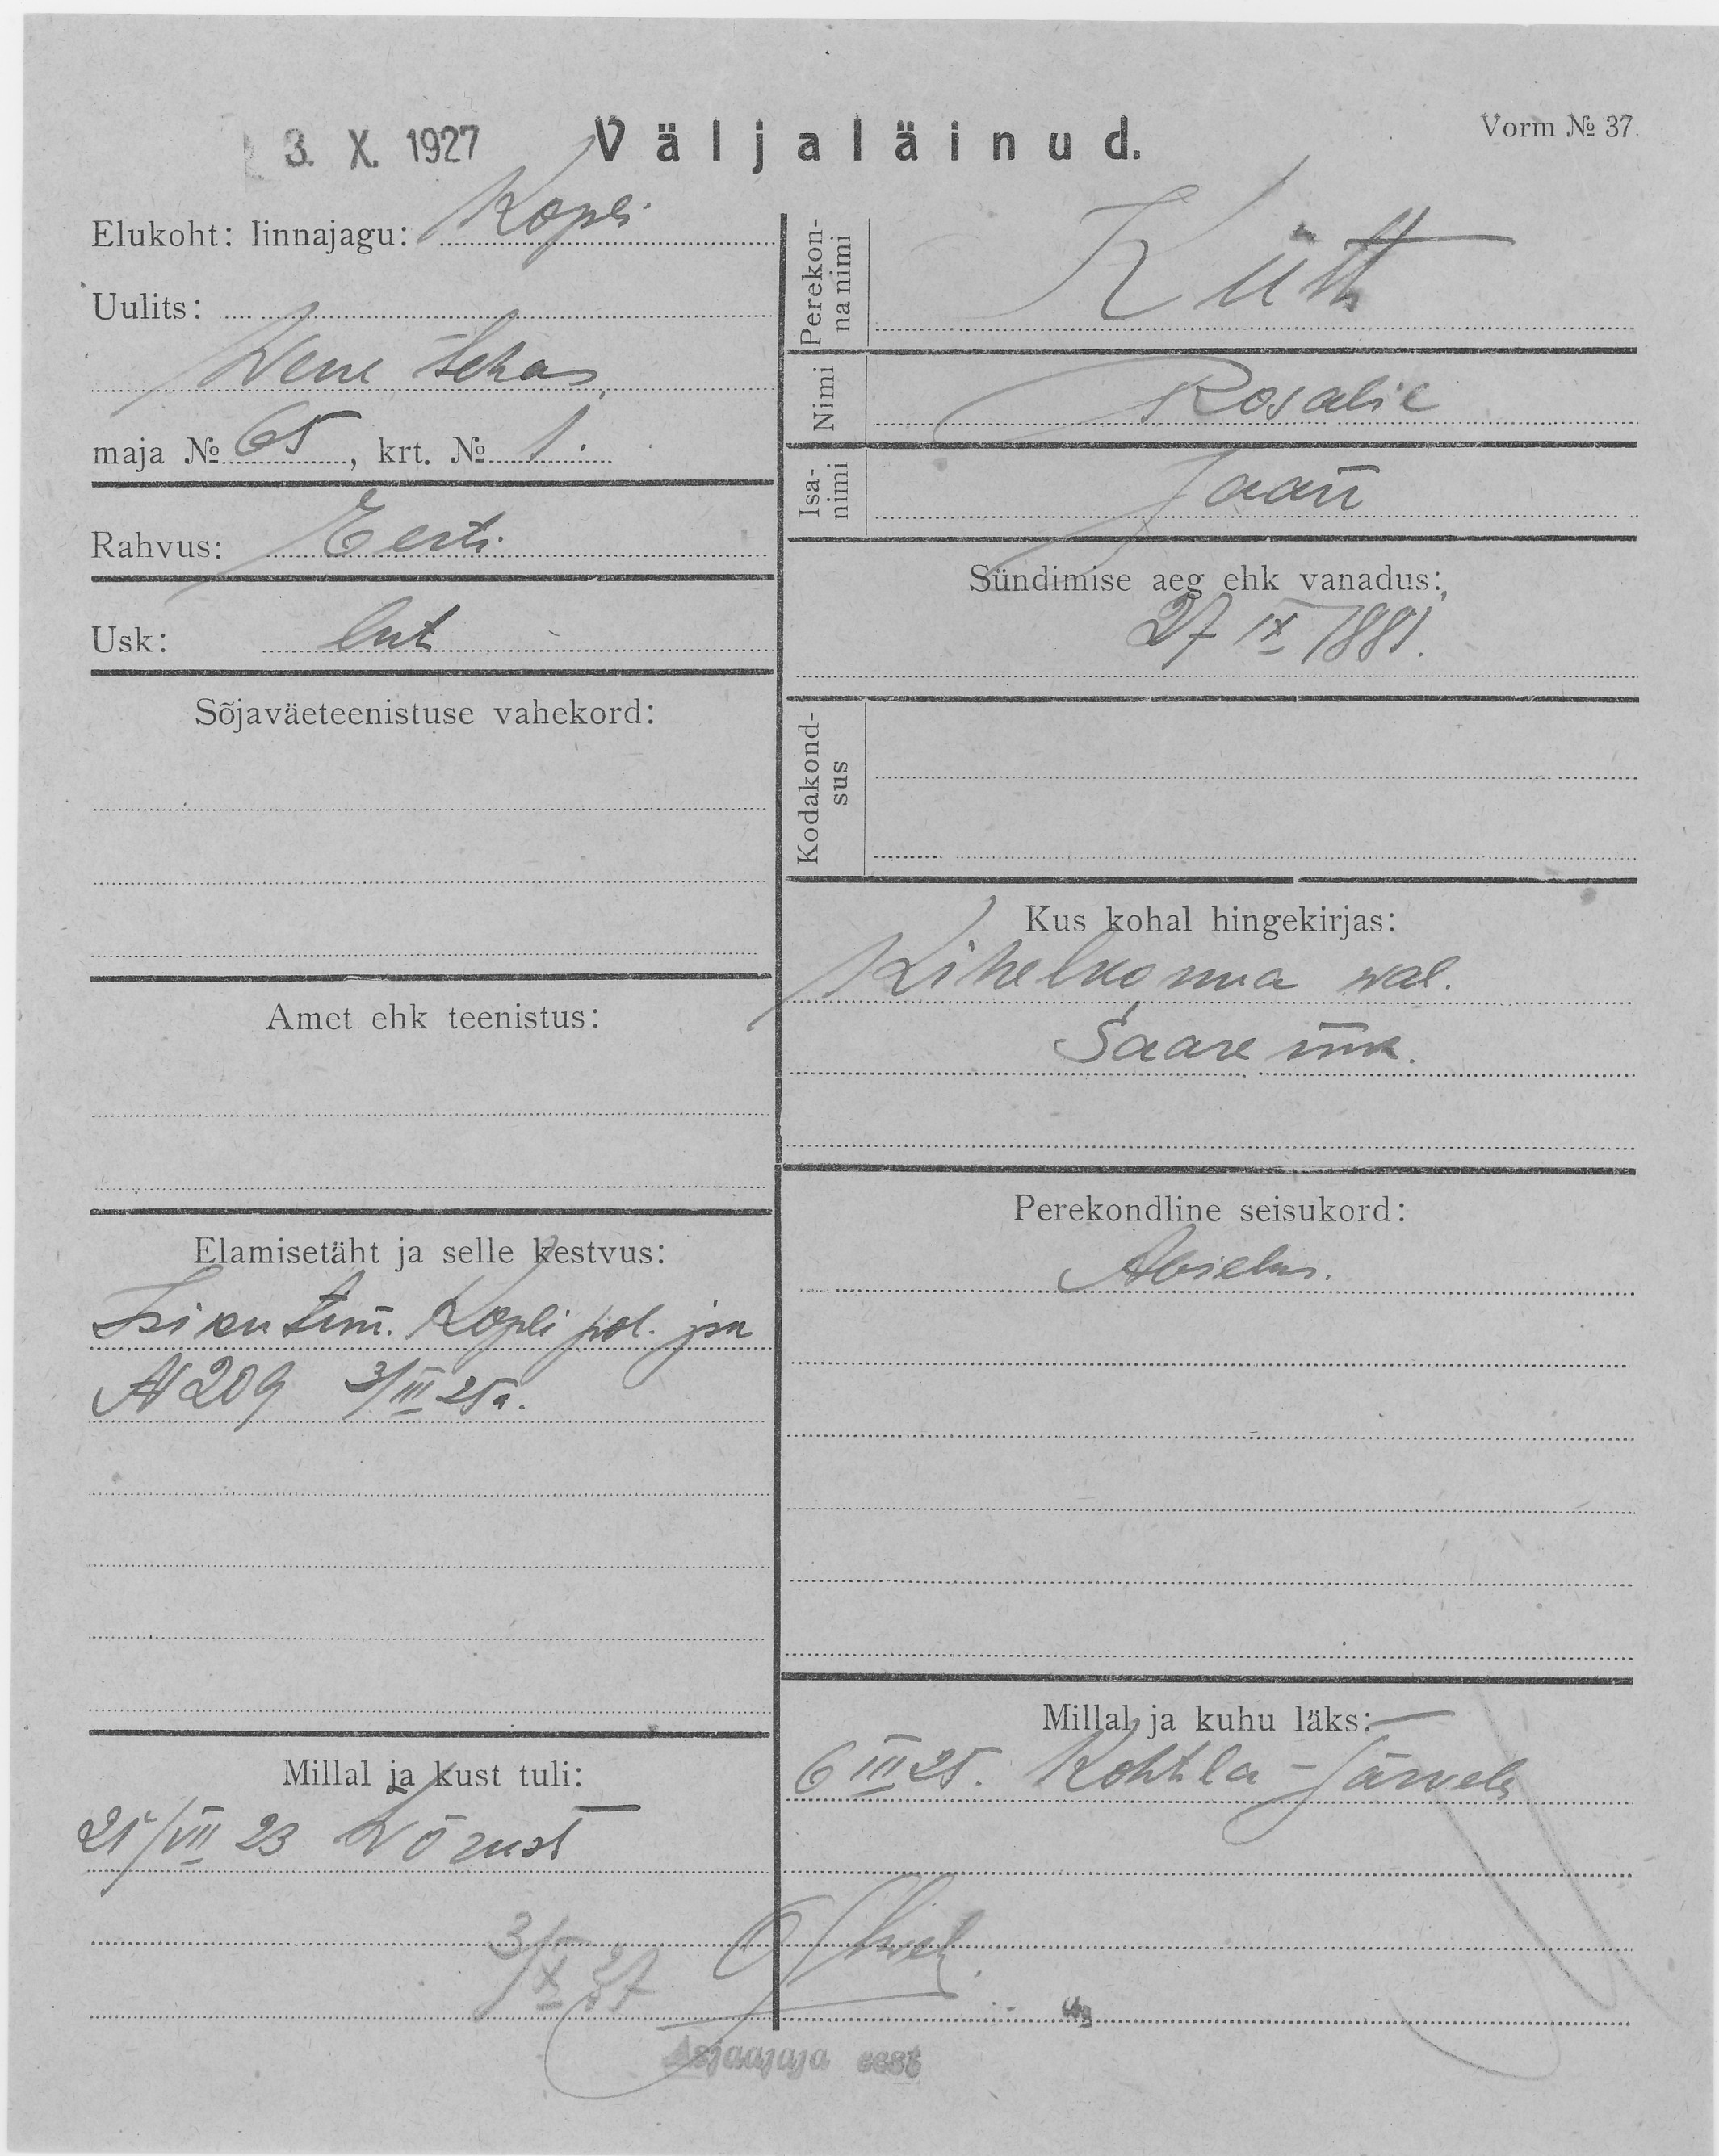 3. X. 1927 Väljaläinud. Vorm № 37.
Elukoht: linnajagu: Kopli
Uulits:
Wene tehas
maja № 65, krt. № 1.
Rahvus: Eesti
Usk: lut
Sõjaväeteenistuse vahekord:
Amet ehk teenistus:
Elamisetäht ja selle kestvus:
Isikutun. Kopli pol. jsk
N 209 3/III 25 a.
Millal ja kust tuli:
21/VII 23 Wõrust
3/X 27
Perekon-
na nimi
Kütt
Nimi Rosalie
Isa-
nimi
Jaan
Sündimise aeg ehk vanadus:
27 IX 1881.
Kodakond-
sus
Kus kohal hingekirjas:
Kihelkonna wal.
Saare mk.
Perekondline seisukord:
Abielus.
Millal ja kuhu läks:
6 III 25. Kohtla-Järvele
Asjaajaja eest